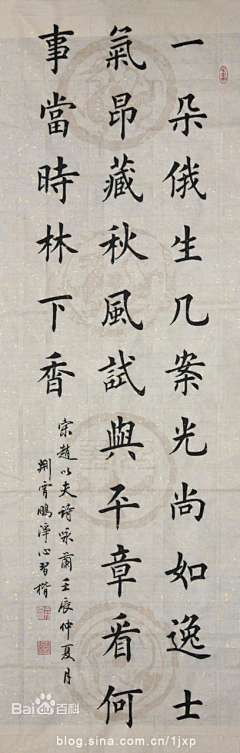 一朵俄生几案光尚如逸士
氣昂藏秋風試與平章看何
事當時林下香
宋趙以夫詩咏蘭壬辰仲夏月
荆霄鵬淨心習楷
Bai百科
blog.sina.com.cn/1jxp